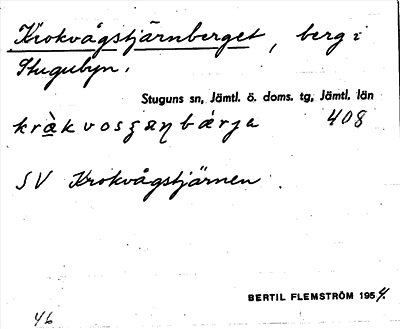 Krokvågstjärnberget, berg i
Stugubyn.
Stuguns sn, Jämtl. ö. doms. tg, Jämtl. län
408
SV Krokvågstjärnen.
BERTIL FLEMSTRÖM 1954.
46